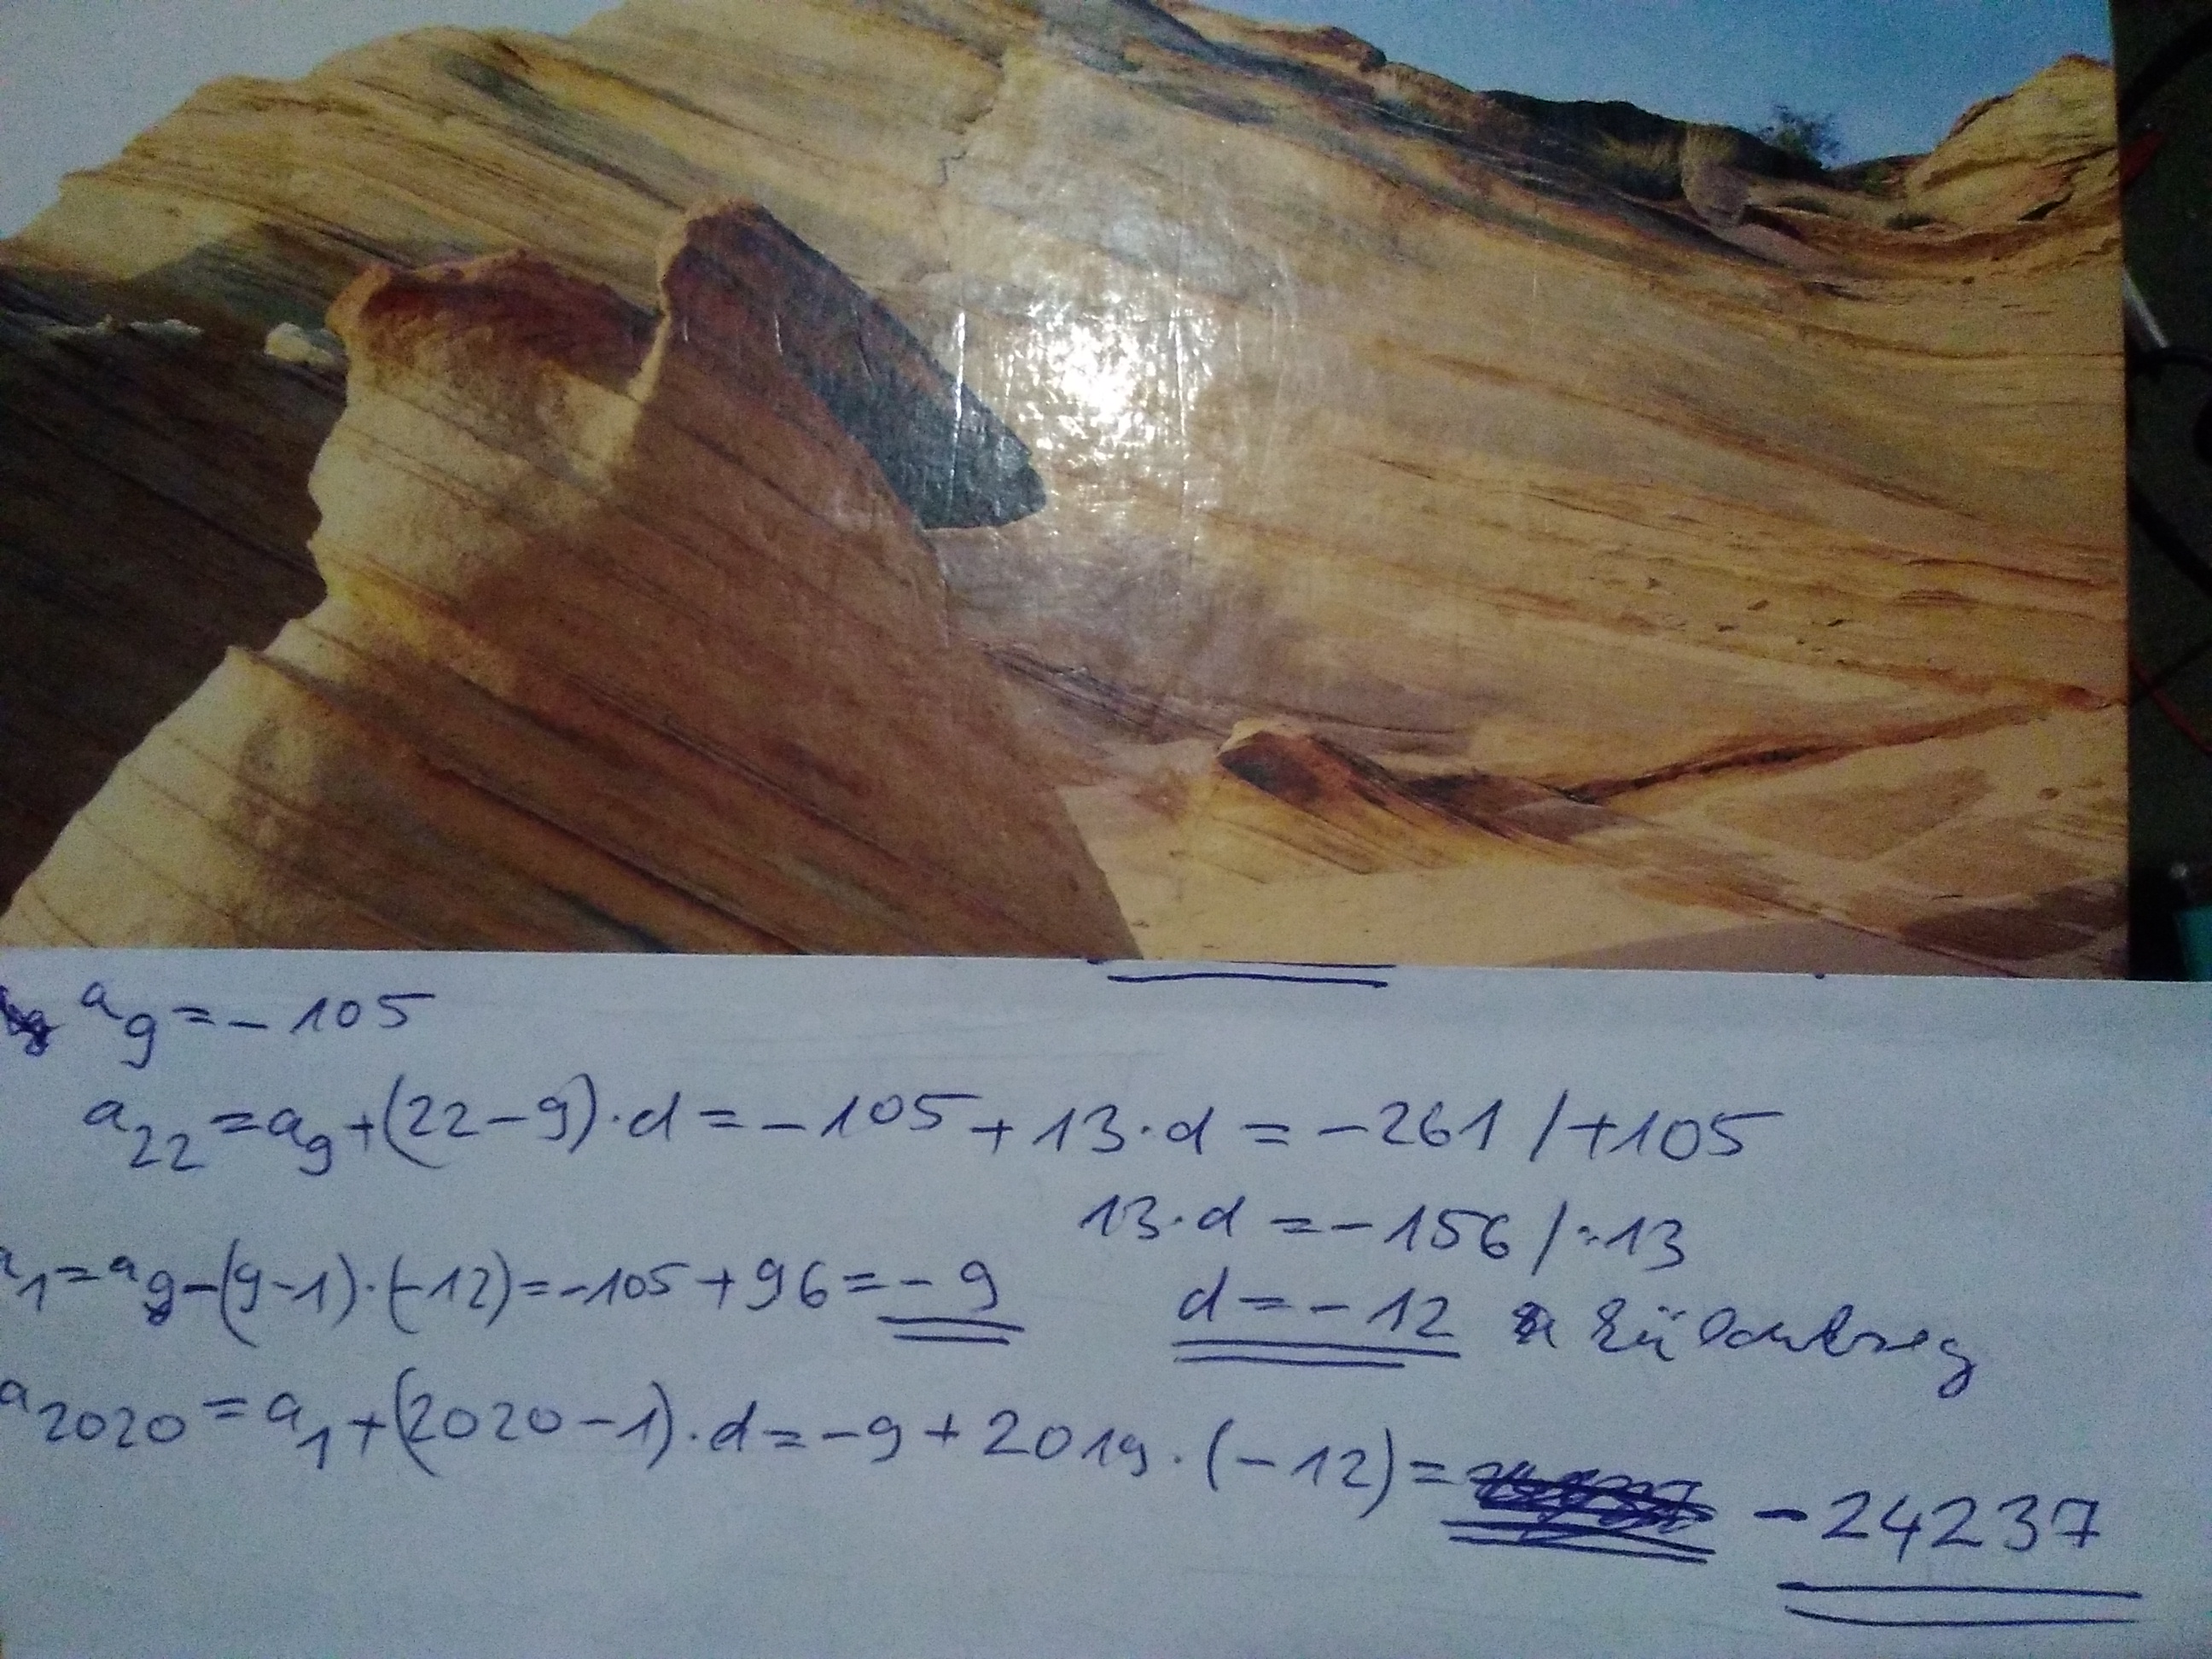 a₉ = -105
a₂₂ = a₉ + (22-9)·d = -105 + 13·d = -261 /+105
13·d = -156 /:13
a₁ = a₉ - (9-1)·(-12) = -105 + 96 = -9
d = -12
a₂₀₂₀ = a₁ + (2020-1)·d = -9 + 2019·(-12) = -24237